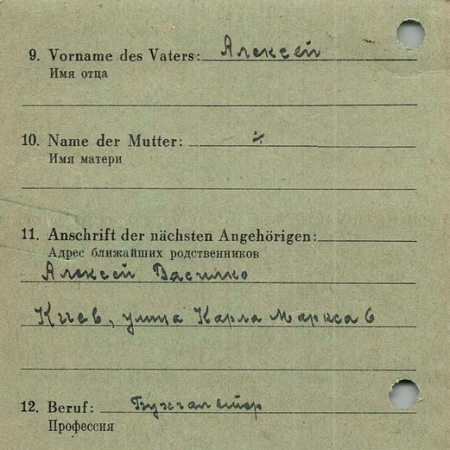 9. Vorname des Vaters: Алексей
Имя отца
10. Name der Mutter: ⁒
Имя матери
11. Anschrift der nächsten Angehörigen:
Адрес ближайших родственников
Алексей Василко
Киев, улица Карла Маркса 6
12. Beruf: Бухгалтер
Профессия